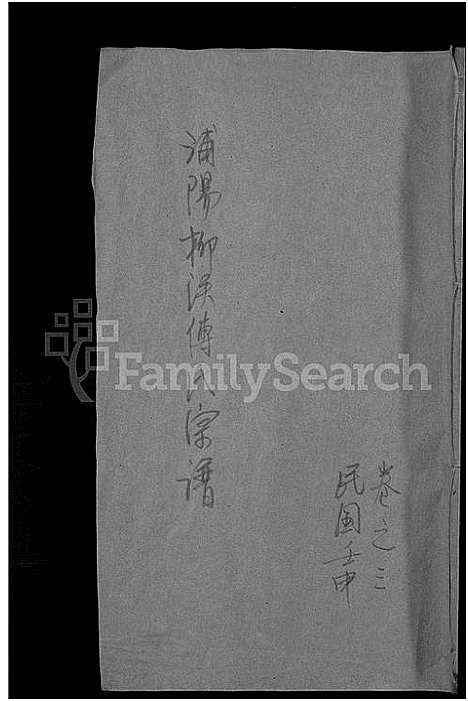 浦陽柳溪傅氏宗谱
卷之三
民国壬申
FamilySearch